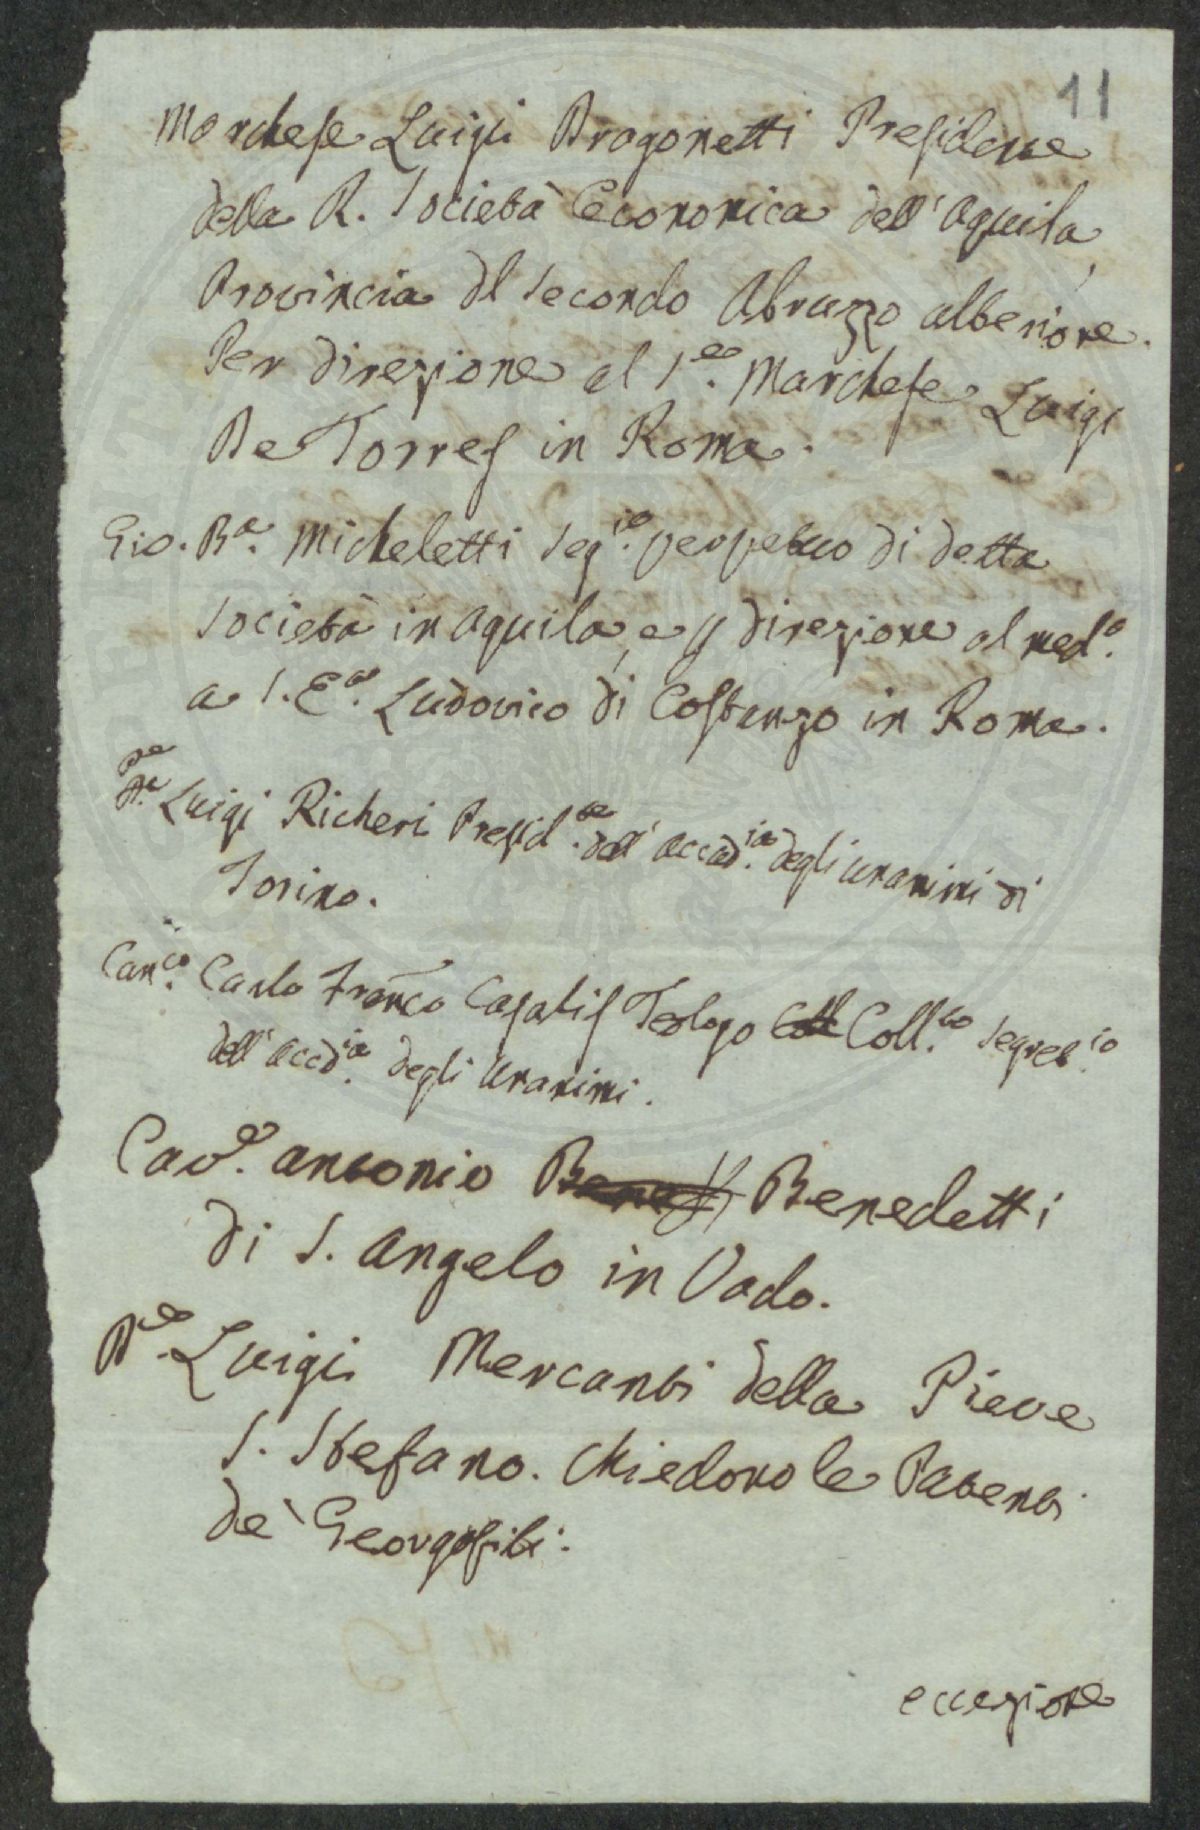 11
Marchese Luigi Dragonetti Presidente
della R. Società Economica dell'Aquila,
Provincia del Secondo Abruzzo ulteriore.
Per direzione al S.e Marchese Luigi
De Torres in Roma.
Gio. Ba. Micheletti Seg.io perpetuo di detta
Società in Aquila, e direzione al med.o
a S. E.a Ludovico di Costanzo in Roma.
Luigi Richeri Presid.te dell'Accad.ia degli Unanimi di
Torino.
Can.co Carlo Franco Casalis Teologo Coll.to Segret.io
dell'Accd.ia degli Unanimi.
Cav.e Antonio Benedetti
di S. Angelo in Vado.
D.e Luigi Mercanti della Pieve
S. Stefano. Chiedono le Patenti
de' Georgofili.
eccezione